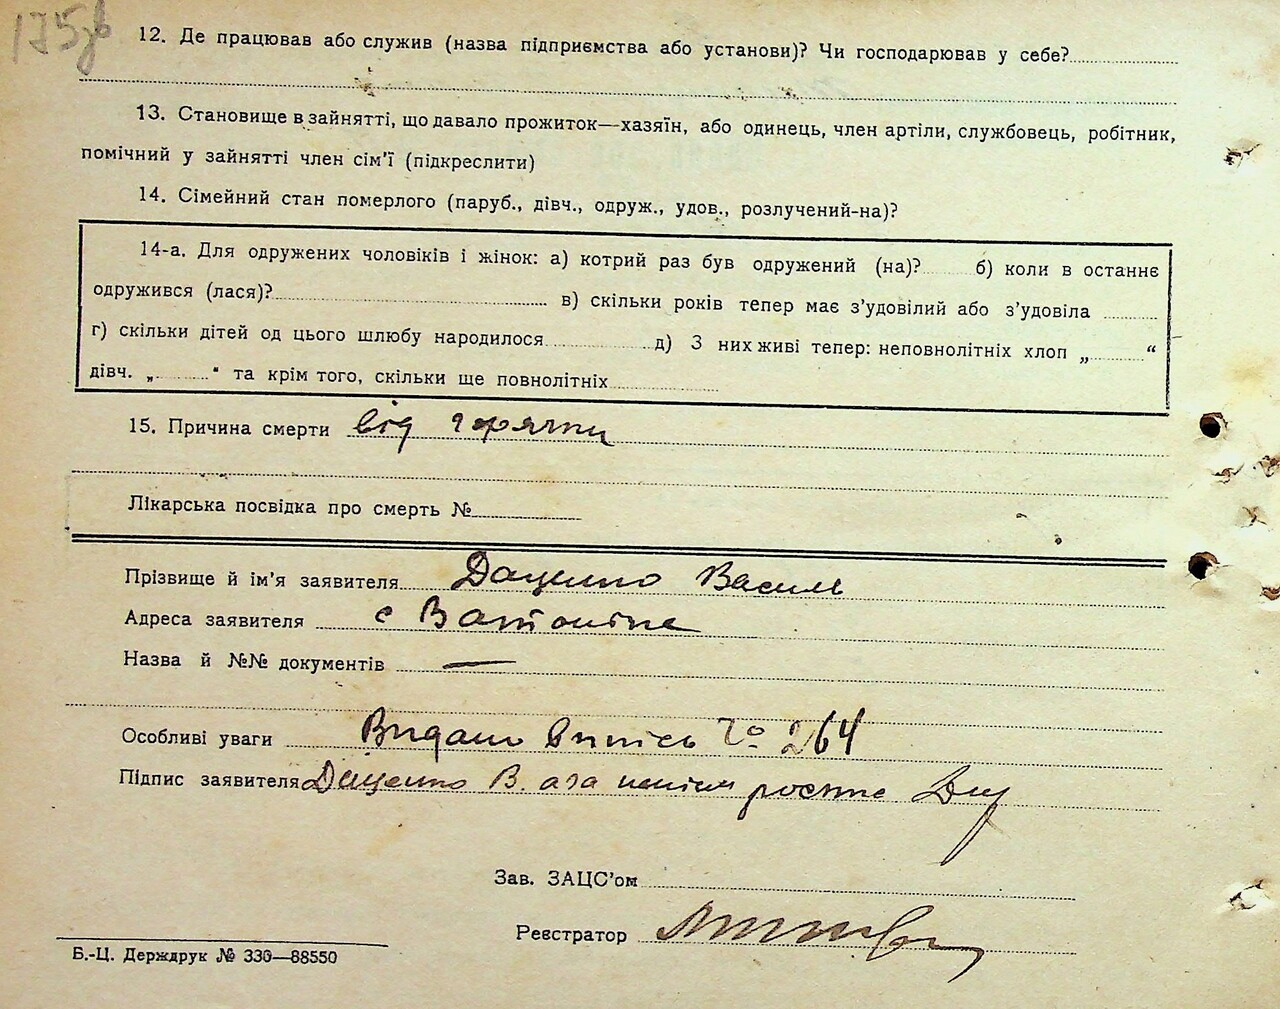 175зв
12. Де працював або служив (назва підприємства або установи)? Чи господарював у себе?
13. Становище в зайнятті, що давало прожиток—хазяїн, або одинець, член артіли, службовець, робітник,
помічний у зайнятті член сім'ї (підкреслити)
14. Сімейний стан померлого (паруб., дівч., одруж., удов., розлучений-на)?
14-а. Для одружених чоловіків і жінок: а) котрий раз був одружений (на)? б) коли в останнє
одружився (лася)? в) скільки років тепер має з'удовілий або з'удовіла
г) скільки дітей од цього шлюбу народилося д) З них живі тепер: неповнолітніх хлоп „ “
дівч. „ “ та крім того, скільки ще повнолітніх
15. Причина смерти від горячки
Лікарська посвідка про смерть №
Прізвище й ім'я заявителя Даценко Василь
Адреса заявителя с
Назва й №№ документів —
Особливі уваги Видано випісь № 264
Підпис заявителя Даценко В. а за
Зав. ЗАЦС'ом
Реєстратор
Б.-Ц. Держдрук № 330—88550